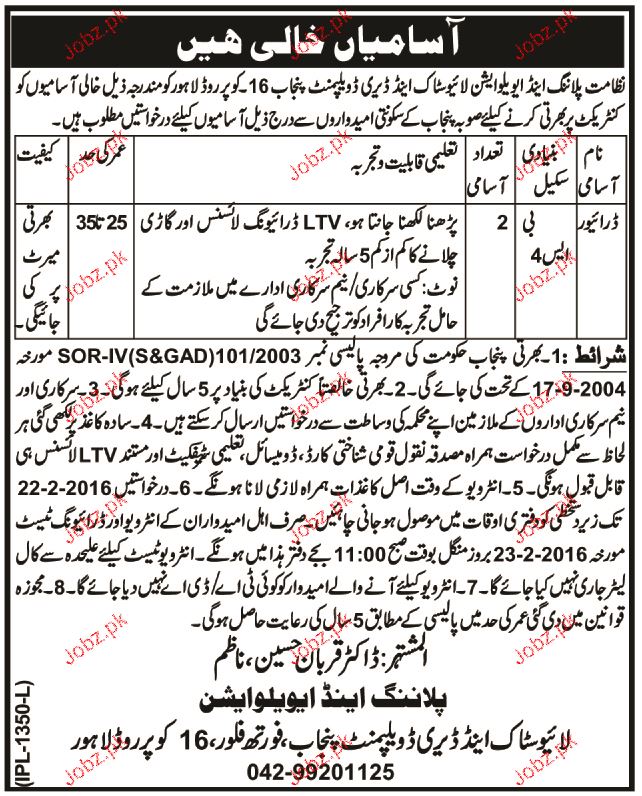 آسامیاں خالی ھیں
نظامت پلاننگ اینڈ ایویلوایشن لائیوسٹاک اینڈ ڈیری ڈویلپمنٹ پنجاب 16۔کوپر روڈ لاہور کو مندرجہ ذیل خالی آسامیوں کو
کنٹریکٹ پر بھرتی کرنے کیلئے صوبہ پنجاب کے سکونتی امیدواروں سے درج ذیل آسامیوں کیلئے درخواستیں مطلوب ہیں۔
نام آسامی
بنیادی سکیل
تعداد آسامی
تعلیمی قابلیت و تجربہ
عمر کی حد
کیفیت
ڈرائیور
بی ایس 4
2
پڑھنا لکھنا جانتا ہو، LTV ڈرائیونگ لائسنس اور گاڑی
چلانے کا کم از کم 5 سالہ تجربہ
نوٹ: کسی سرکاری/نیم سرکاری ادارے میں ملازمت کے
حامل تجربہ کار افراد کو ترجیح دی جائے گی
25 تا 35
بھرتی
میرٹ
پر کی
جائیگی۔
شرائط: 1۔ بھرتی پنجاب حکومت کی مروجہ پالیسی نمبر SOR-IV(S&GAD)101/2003 مورخہ
17-9-2004 کے تحت کی جائے گی۔ 2۔ بھرتی خالصتاً کنٹریکٹ کی بنیاد پر 5 سال کیلئے ہوگی۔ 3۔ سرکاری اور
نیم سرکاری اداروں کے ملازمین اپنے محکمہ کی وساطت سے درخواستیں ارسال کر سکتے ہیں۔ 4۔ سادہ کاغذ پر لکھی گئی ہر
لحاظ سے مکمل درخواست ہمراہ مصدقہ نقول قومی شناختی کارڈ، ڈومیسائل، تعلیمی سرٹیفکیٹ اور مستند LTV لائسنس ہی
قابل قبول ہونگی۔ 5۔ انٹرویو کے وقت اصل کاغذات ہمراہ لازمی لانا ہونگے۔ 6۔ درخواستیں 22-2-2016
تک زیر دستخطی کو دفتری اوقات میں موصول ہو جانی چاہئیں۔ صرف اہل امیدواران کے انٹرویو اور ڈرائیونگ ٹیسٹ
مورخہ 23-2-2016 بروز منگل بوقت صبح 11:00 بجے دفتر ہذا میں ہونگے۔ انٹرویو ٹیسٹ کیلئے علیحدہ سے کال
لیٹر جاری نہیں کیا جائے گا۔ 7۔ انٹرویو کیلئے آنے والے امیدوار کو کوئی ٹی اے/ ڈی اے نہیں دیا جائے گا۔ 8۔ مجوزہ
قوانین میں دی گئی عمر کی حد میں پالیسی کے مطابق 5 سال کی رعایت حاصل ہوگی۔
المشتہر: ڈاکٹر قربان حسین، ناظم
پلاننگ اینڈ ایویلوایشن
لائیوسٹاک اینڈ ڈیری ڈویلپمنٹ پنجاب، فورتھ فلور، 16 کوپر روڈ لاہور
042-99201125
(IPL-1350-L)
Jobz.pk